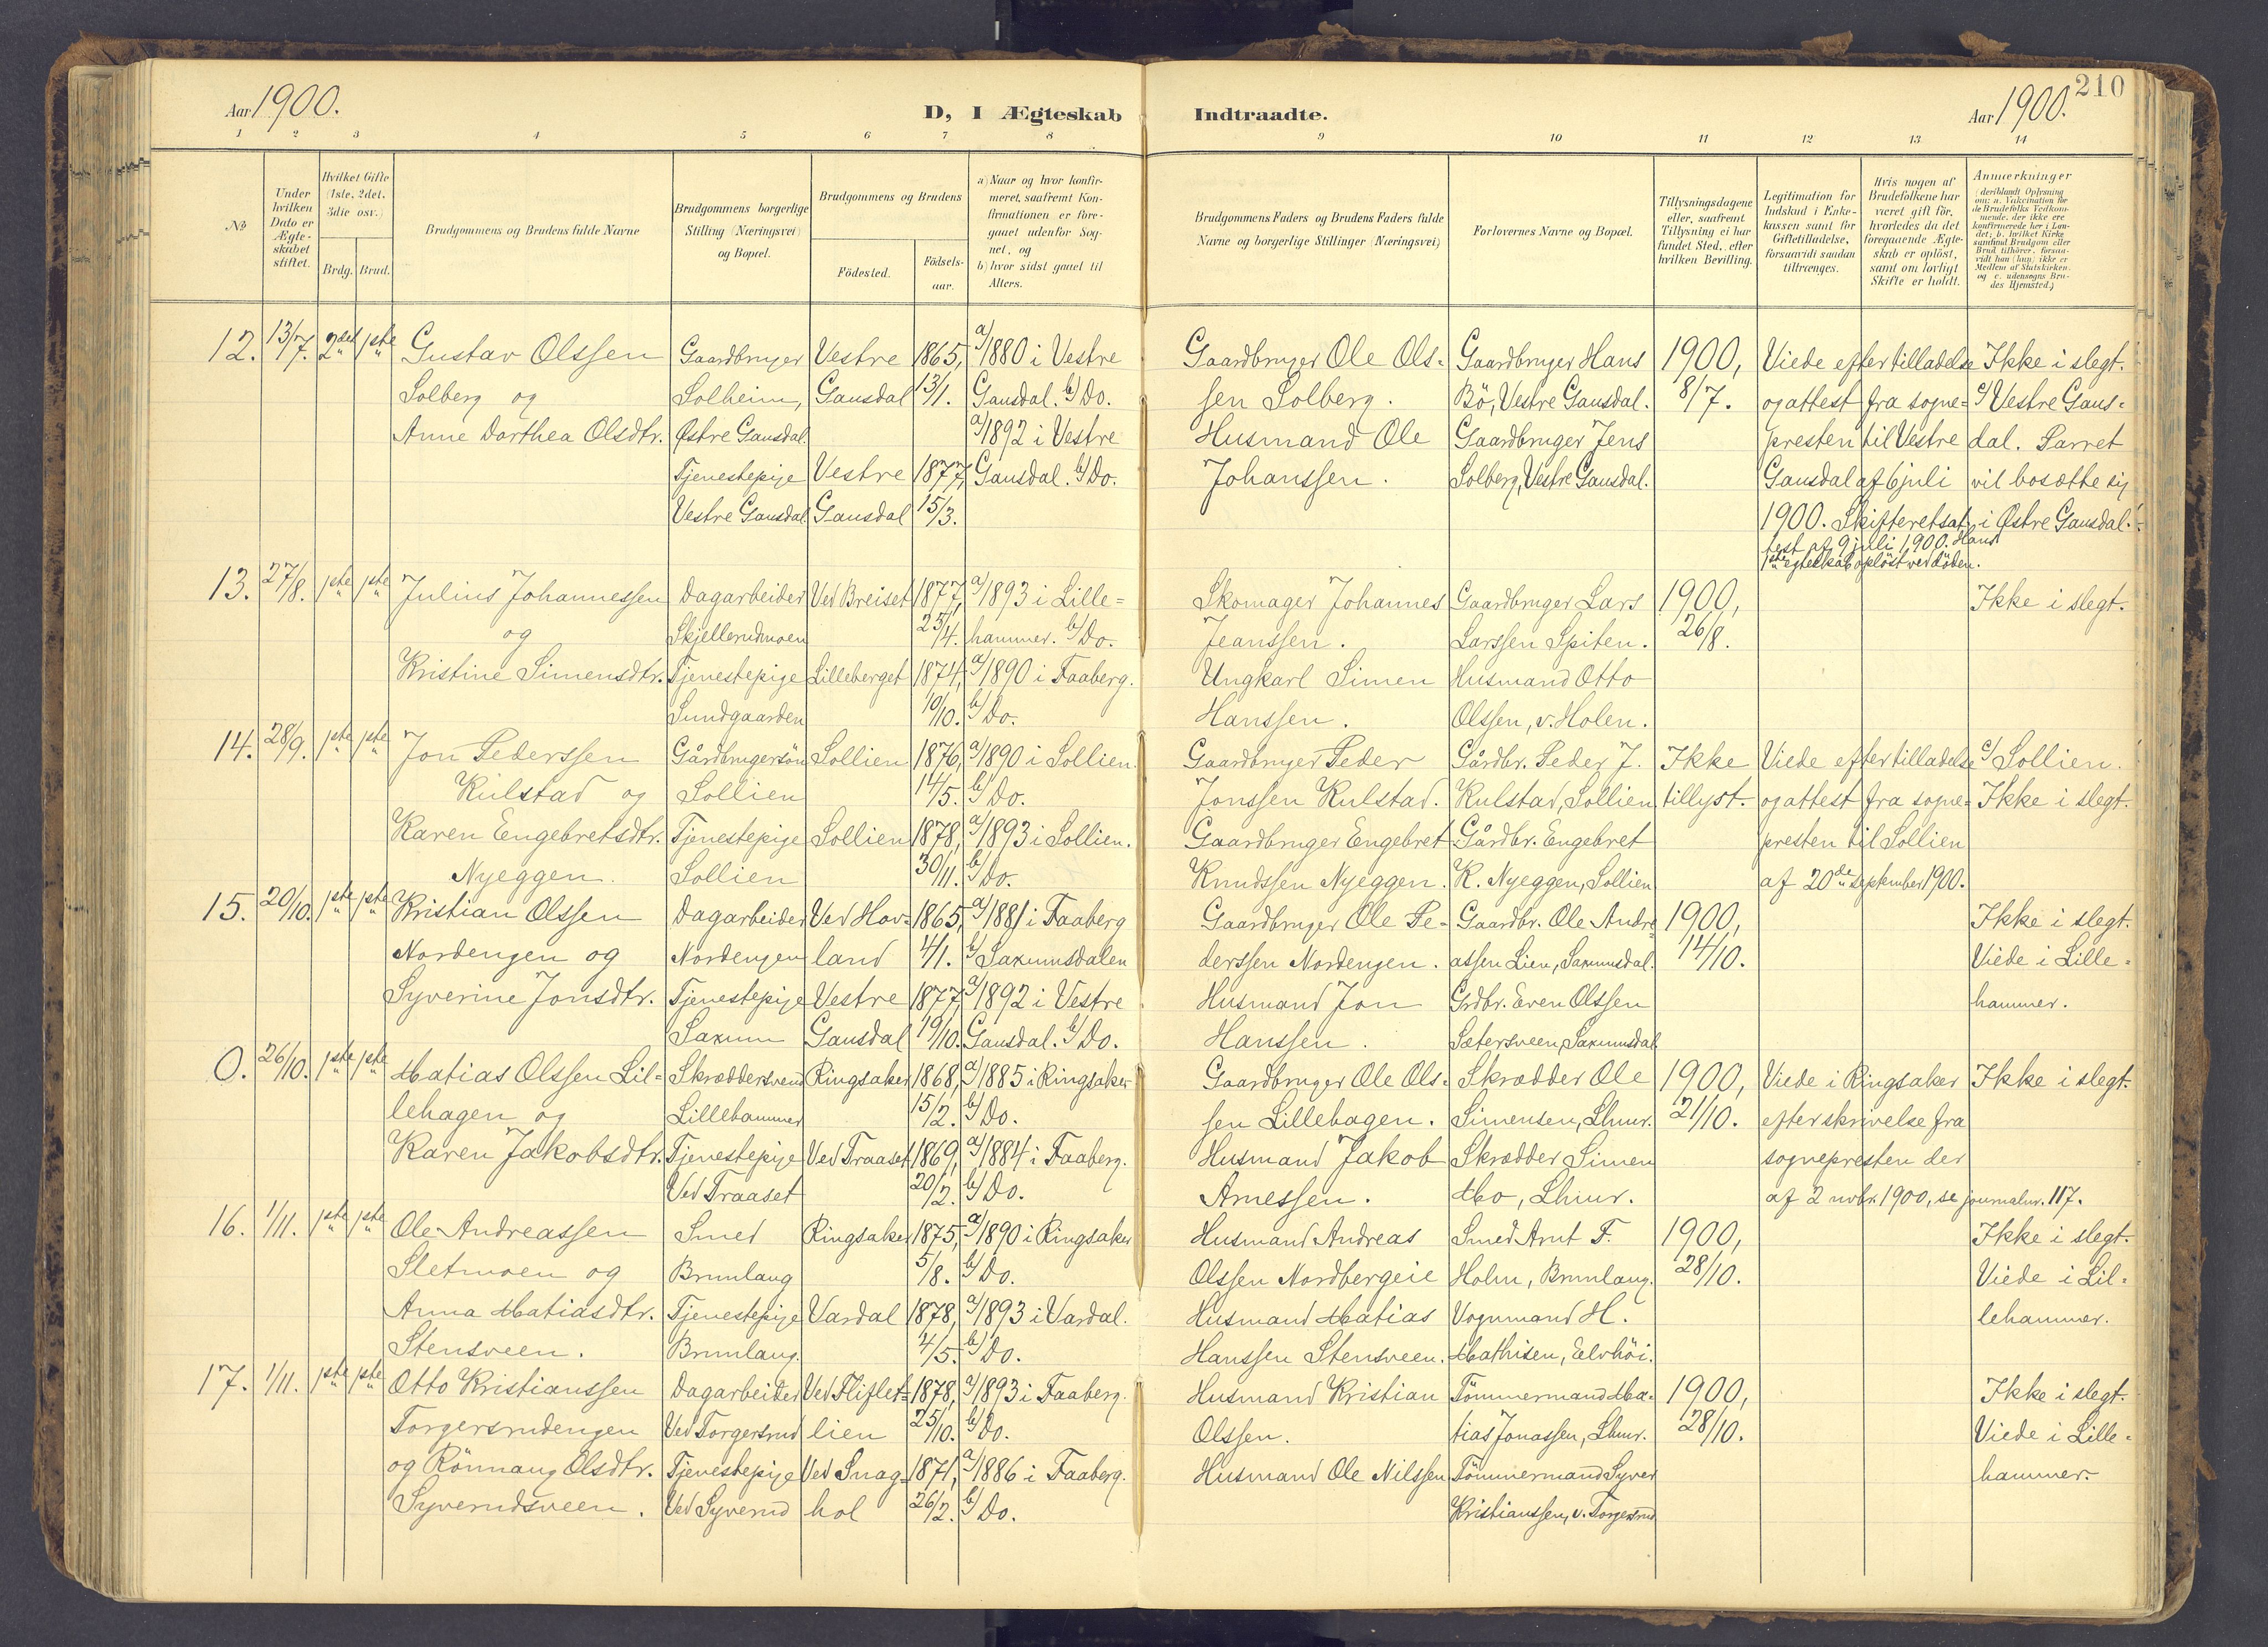 210
Aar 1900.
D, I Ægteskab Indtraadte.
Aar 1900.
1 2 3 4 5 6 7 8 9 10 11 12 13 14
№
Under hvilken Dato er Ægteskabet stiftet.
Hvilket Gifte (1ste, 2det, 3die osv.)
Brdg. Brud.
Brudgommens og Brudens fulde Navne
Brudgommens borgerlige Stilling (Næringsvei) og Bopæl.
Brudgommens og Brudens
Födested.
Födselsaar.
a) Naar og hvor konfirmeret, saafremt Konfirmationen er foregaaet udenfor Sognet, og
b) hvor sidst gaaet til Alters.
Brudgommens Faders og Brudens Faders fulde Navne og borgerlige Stillinger (Næringsvei)
Forlovernes Navne og Bopæl.
Tillysningsdagene eller, saafremt Tillysning ei har fundet Sted, efter hvilken Bevilling.
Legitimation for Indskud i Enkekassen samt for Giftetilladelse, forsaavidt saadan tiltrænges.
Hvis nogen af Brudefolkene har været gift för, hvorledes da det foregaaende Ægteskab er oplöst, samt om lovligt Skifte er holdt.
Anmerkninger
(deriblandt Oplysning om: a. Vakcination for de Brudefolks Vedkommende, der ikke ere konfirmerede her i Landet; b. hvilket Kirkesamfund Brudgom eller Brud tilhører, forsaavidt han (hun) ikke er Medlem af Statskirken, og c. udensogns Brudes Hjemsted.)
12. 13/7. 2det 1ste Gustav Olssen Gaardbruger Vestre 1865, a/ 1880 i Vestre Gaardbruger Ole Ols- Gaardbruger Hans 1900, Viede efter tilladelse Ikke i slegt.
Solberg og Solheim, Gausdal 13/1. Gausdal. b/ Do. sen Solberg. Bö, Vestre Gausdal. 8/7. og attest fra sogne- c/ Vestre Gaus-
Anne Dorthea Olsdtr. Østre Gausdal. a/ 1892 i Vestre Husmand Ole Gaardbruger Jens presten til Vestre dal. Parret
Tjenestepige Vestre 1877, Gausdal. b/ Do. Johanssen. Solberg, Vestre Gausdal. Gausdal af 6 juli vil bosætte sig
Vestre Gausdal Gausdal 15/3. 1900. Skifteretsat- i Østre Gausdal.
test af 9 juli 1900. Hans
1ste egteskab oplöst ved döden.
13. 27/8. 1ste 1ste Julius Johannessen Dagarbeider Ved Breiset 1877, a/ 1893 i Lille- Skomager Johannes Gaardbruger Lars 1900, Ikke i slegt.
og Skjellerudmoen 23/4. hammer. b/ Do. Jeanssen. Larssen Spiten. 26/8.
Kristine Simensdtr. Tjenestepige Lilleberget 1874, a/ 1890 i Faaberg. Ungkarl Simen Husmand Otto
Sundgaarden 10/10. b/ Do. Hanssen. Olssen, v. Holen.
14. 28/9. 1ste 1ste Jon Pederssen Gårdbrugersön Sollien 1876, a/ 1890 i Sollien. Gaardbruger Peder Gårdbr. Peder J. Ikke Viede efter tilladelse c/ Sollien.
Kulstad og Sollien 14/5. b/ Do. Jonssen Kulstad. Kulstad, Sollien tillyst. og attest fra sogne- Ikke i slegt.
Karen Engebretsdtr. Tjenestepige Sollien 1878, a/ 1893 i Sollien. Gaardbruger Engebret Gårdbr. Engebret presten til Sollien
Nyeggen. Sollien 30/11. b/ Do. Knudssen Nyeggen. K. Nyeggen, Sollien af 20de september 1900.
15. 20/10. 1ste 1ste Kristian Olssen Dagarbeider Ved Hov- 1865, a/ 1881 i Faaberg Gaardbruger Ole Pe- Gaardbr. Ole Andre- 1900, Ikke i slegt.
Nordengen og Nordengen land 4/1. b/ Saxumsdalen derssen Nordengen. assen Lien, Saxumsdal. 14/10. Viede i Lille-
Syverine Jonsdtr. Tjenestepige Vestre 1877, a/ 1892 i Vestre Husmand Jon Grdbr. Even Olssen hammer.
Saxum Gausdal 19/10. Gausdal. b/ Do. Hanssen. Sætersveen, Saxumsdal
0. 26/10. 1ste 1ste Matias Olssen Lil- Skræddersvend Ringsaker 1868, a/ 1885 i Ringsaker Gaardbruger Ole Ols- Skrædder Ole 1900, Viede i Ringsaker Ikke i slegt.
lehagen og Lillehammer 15/2. b/ Do. sen Lillehagen. Simensen, Lhmr. 21/10. efter skrivelse fra
Karen Jakobsdtr. Tjenestepige Ved Traaset 1869, a/ 1884 i Faaberg. Husmand Jakob Skrædder Simen sognepresten der
Ved Traaset 20/2. b/ Do. Arnessen. Mo, Lhmr. af 2 novbr. 1900, se journalnr. 117.
16. 1/11. 1ste 1ste Ole Andreassen Smed Ringsaker 1875, a/ 1890 i Ringsaker Husmand Andreas Smed Arnt F. 1900, Ikke i slegt.
Sletmoen og Brunlaug 5/8. b/ Do. Olssen Nordbergeie Holm, Brunlaug. 28/10. Viede i Lil-
Anna Matiasdtr. Tjenestepige Vardal 1878, a/ 1893 i Vardal. Husmand Matias Vognmand H. lehammer.
Stensveen. Brunlaug. 4/5. b/ Do. Hanssen Stensveen. Mathisen, Eelvhöi.
17. 1/11. 1ste 1ste Otto Kristianssen Dagarbeider Ved Fliflet- 1878, a/ 1893 i Faaberg. Husmand Kristian Tömmermand Ma- 1900, Ikke i slegt.
Torgersrudengen Ved Torgersrud lien 25/10. b/ Do. Olssen. tias Jonassen, Lhmr. 28/10. Viede i Lille-
og Rönnaug Olsdtr. Tjenestepige Ved Smag- 1871, a/ 1886 i Faaberg. Husmand Ole Nilssen Tömmermand Syver hammer.
Syverudsveen. Ved Syverud hol 26/2. b/ Do. Kristianssen, v. Torgersrud